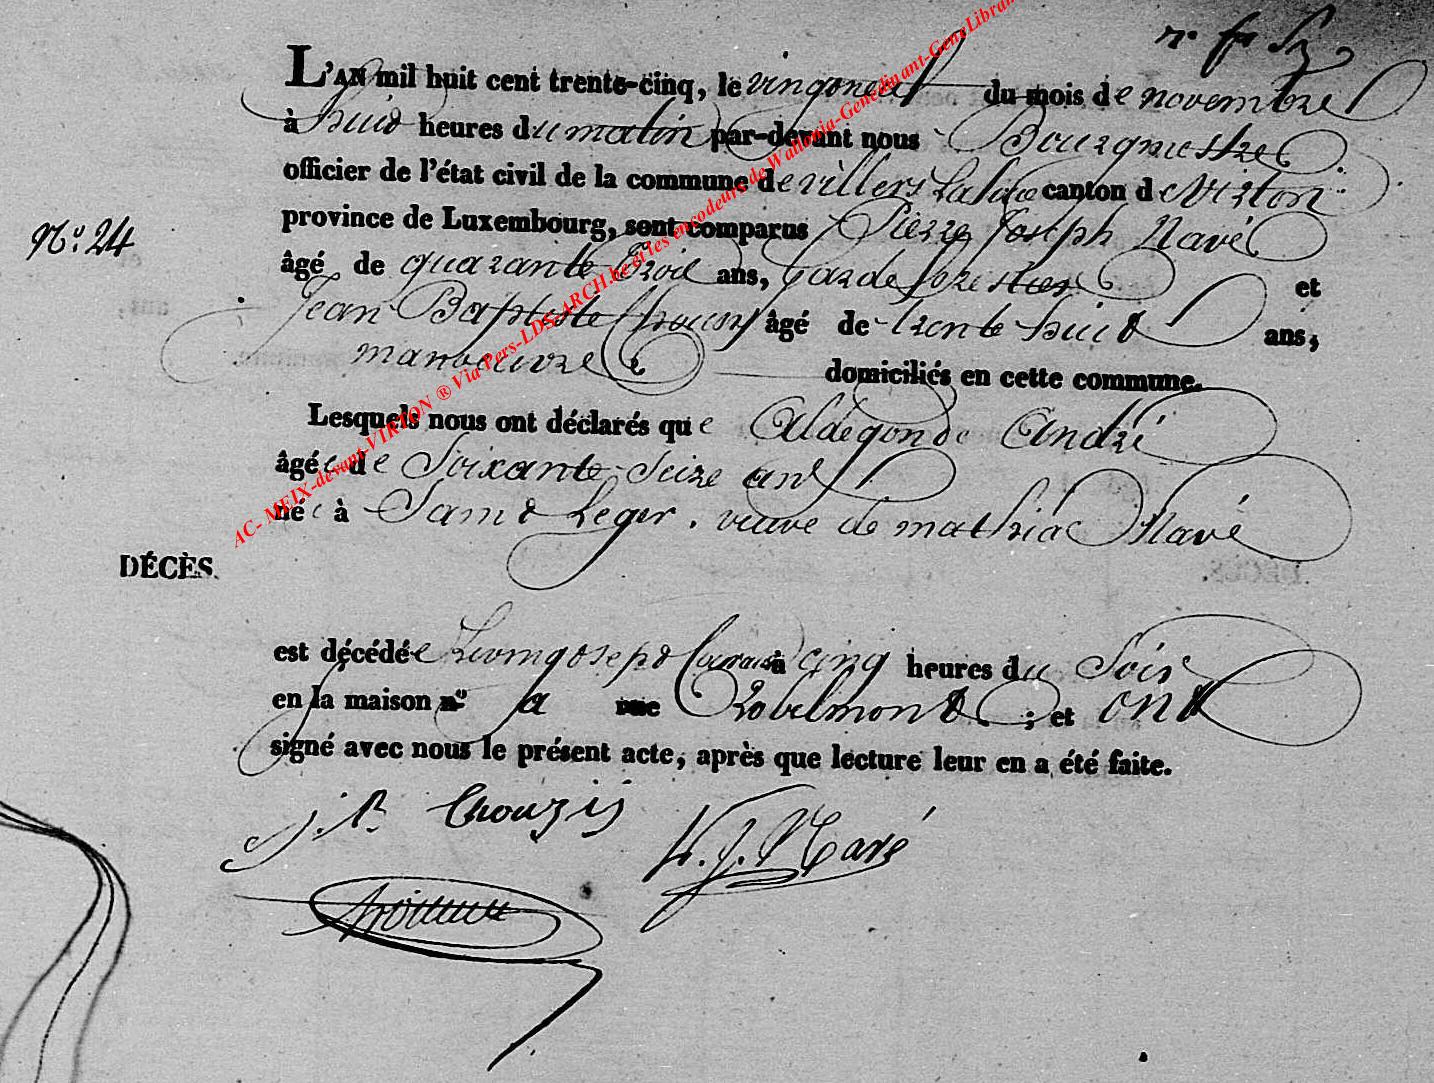 L'AN mil huit cent trente-cinq, le vingoneuf du mois de novembre
à huid heures du matin par-devant nous Bourgmestre
officier de l'état civil de la commune de villers Laloue canton de Virton
N.º 24
province de Luxembourg, sont comparus Pierre Joseph Navé
âgé de quarante Trois ans, garde forestier et
Jean Baptiste Chouzy âgé de trente huid ans,
manoeuvre domiciliés en cette commune.
Lesquels nous ont déclarés que Aldegonde André
âgée de Soixante Seize ans
née à Saind Leger . veuve de mathia Navé
DÉCÈS.
est décédée à cinq heures du Soir
en la maison nº a rue Robelmond ; et ond
signé avec nous le présent acte, après que lecture leur en a été faite.
j. B. Chouzÿ P. J. Navé
AC- MEIX-devant-VIRTON ® Via Pers-LDS-ARCH.be et les encodeurs de Wallonia-Genedinant-GeneLibran